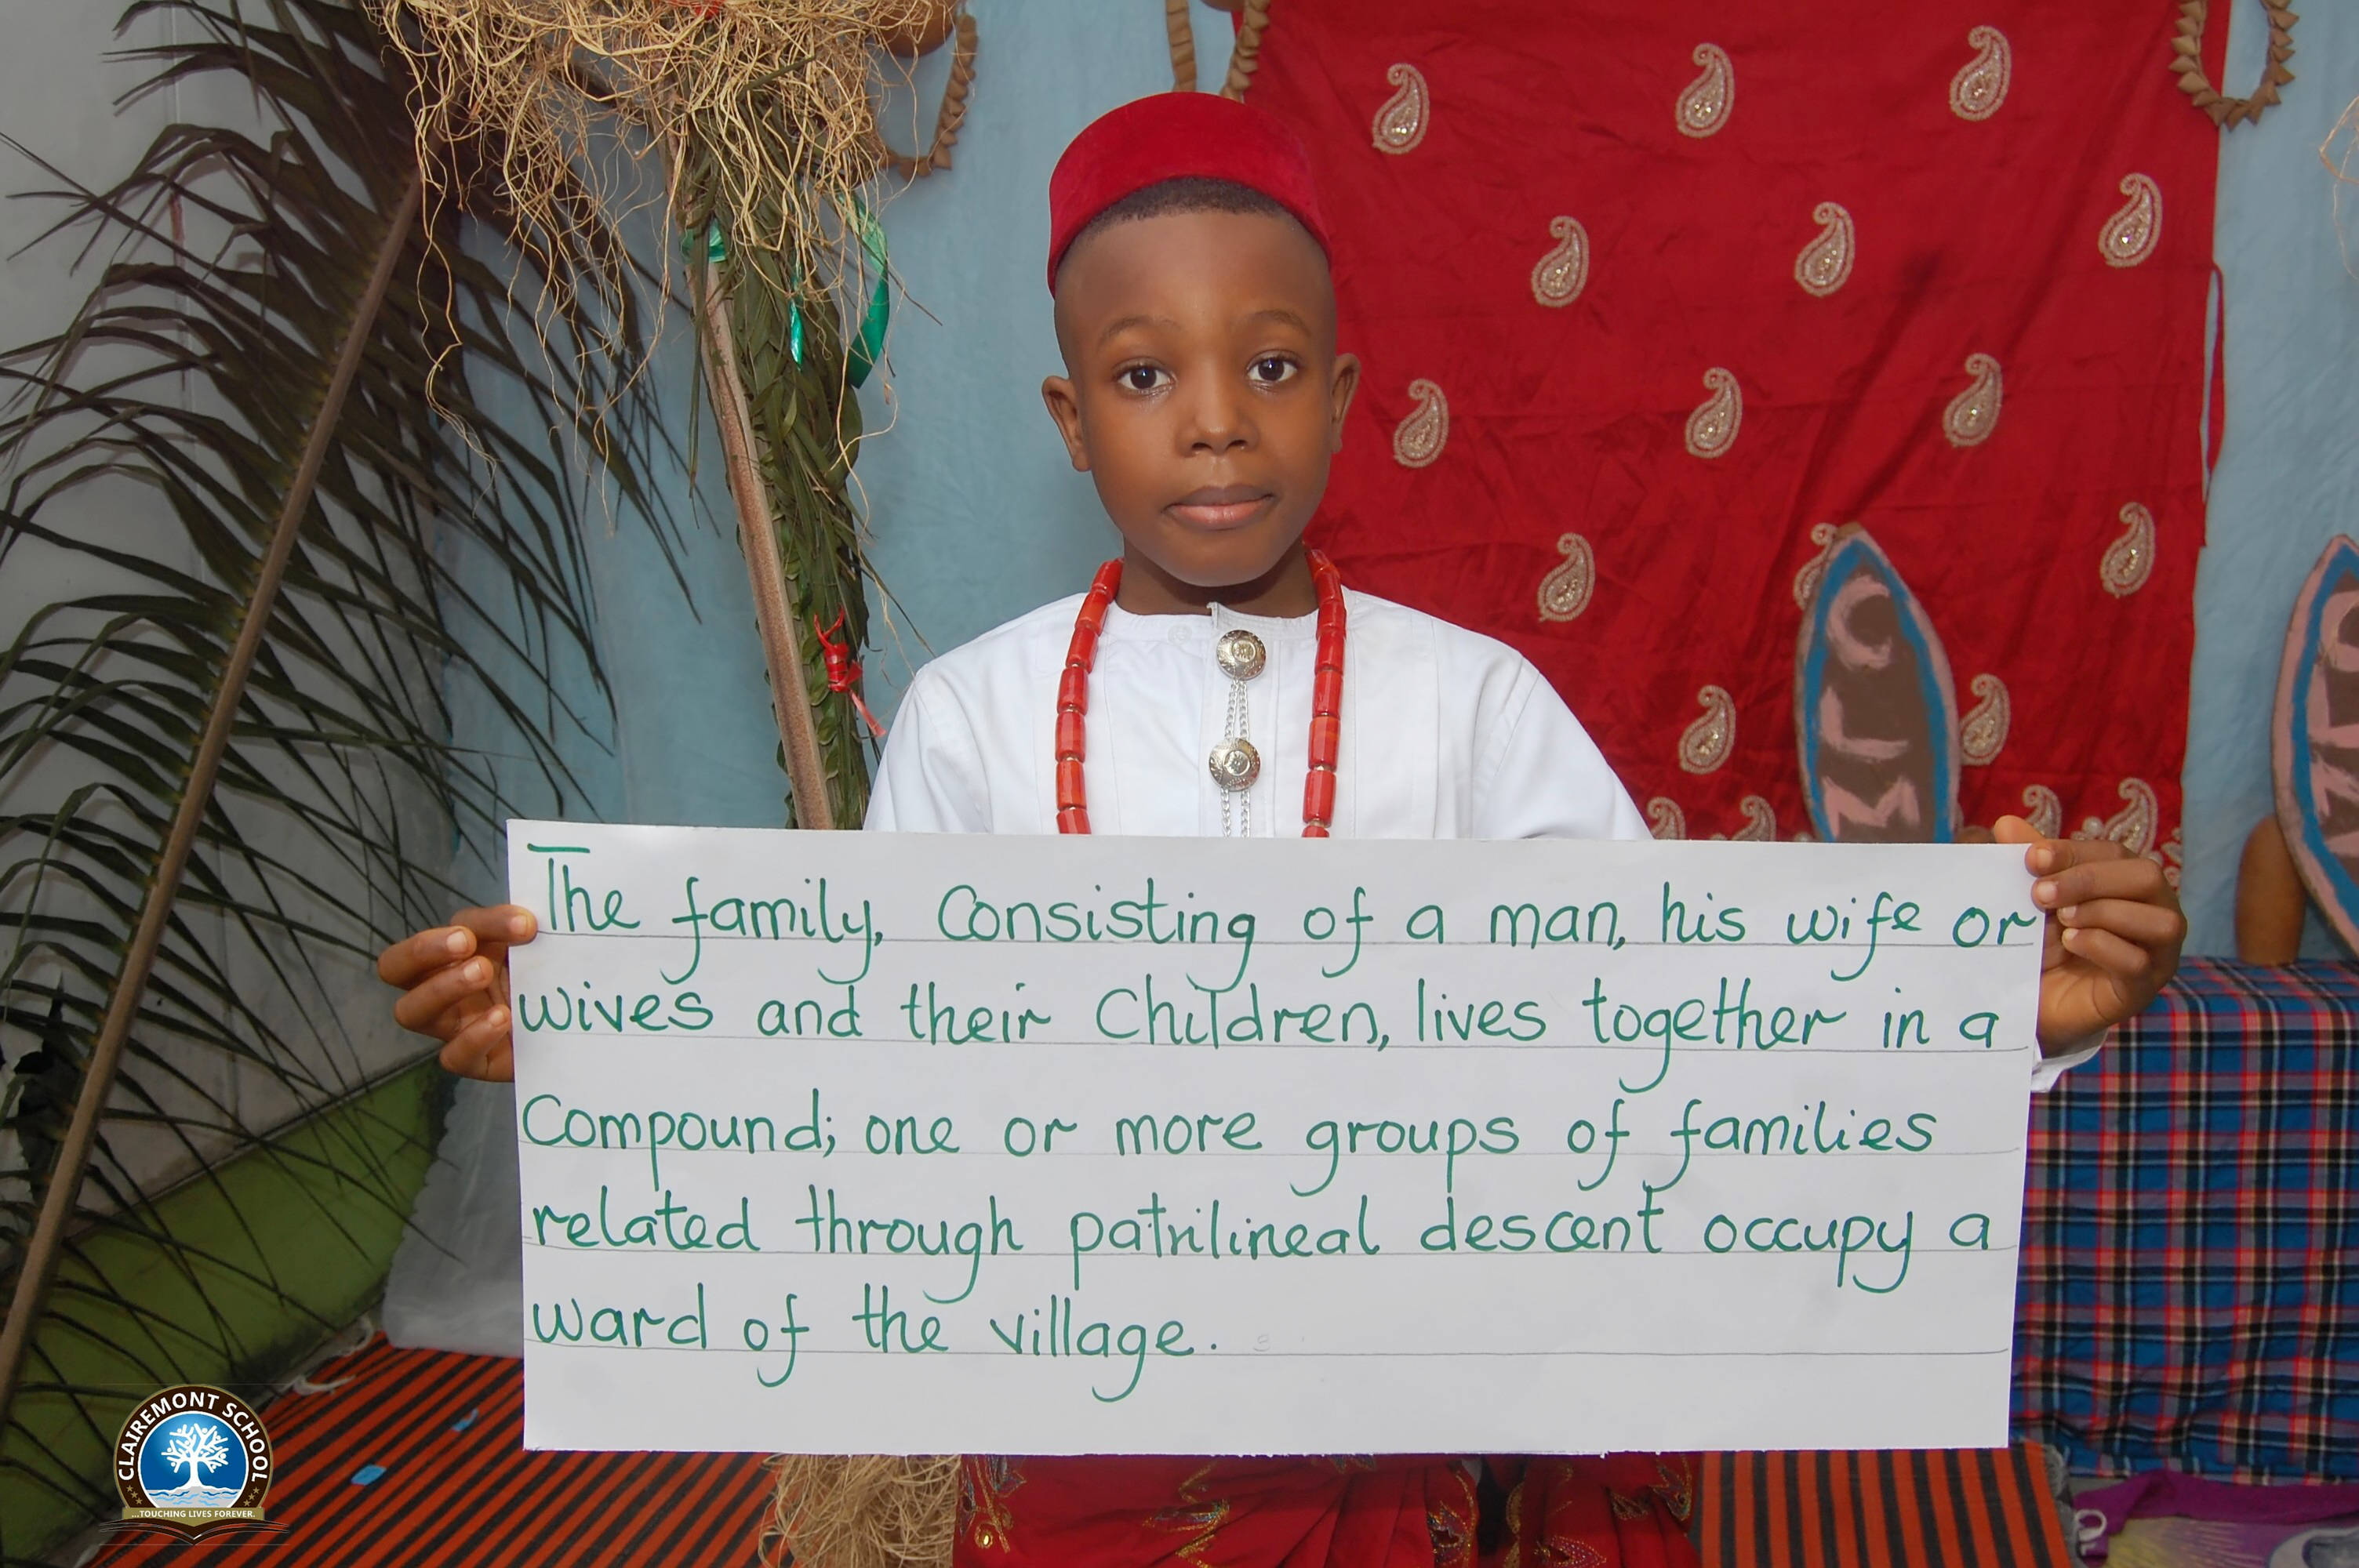 The family, Consisting of a man, his wife or
wives and their Children, lives together in a
Compound; one or more groups of families
related through patrilineal descent occupy a
ward of the village.
CLAIREMONT SCHOOL
...TOUCHING LIVES FOREVER.